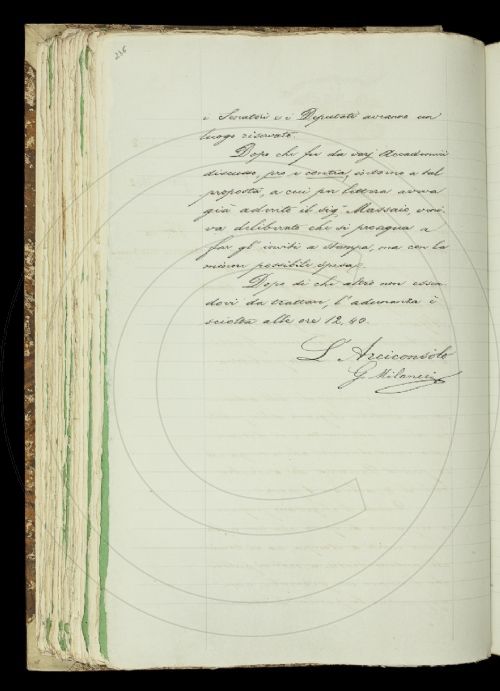 236
i Senatori e i Deputati avranno un
luogo riservato.
Dopo che fu da varj Accademici
discusso, pro e contra, intorno a tal
proposta, a cui per lettera aveva
già aderito il Sig. Massaio, veni-
va deliberato che si prosegua a
far gl'inviti a stampa, ma con la
minore possibile spesa.
Dopo di che altro non essen-
dovi da trattare, l'adunanza è
sciolta alle ore 12,40.
L'Arciconsolo
G. Milanesi